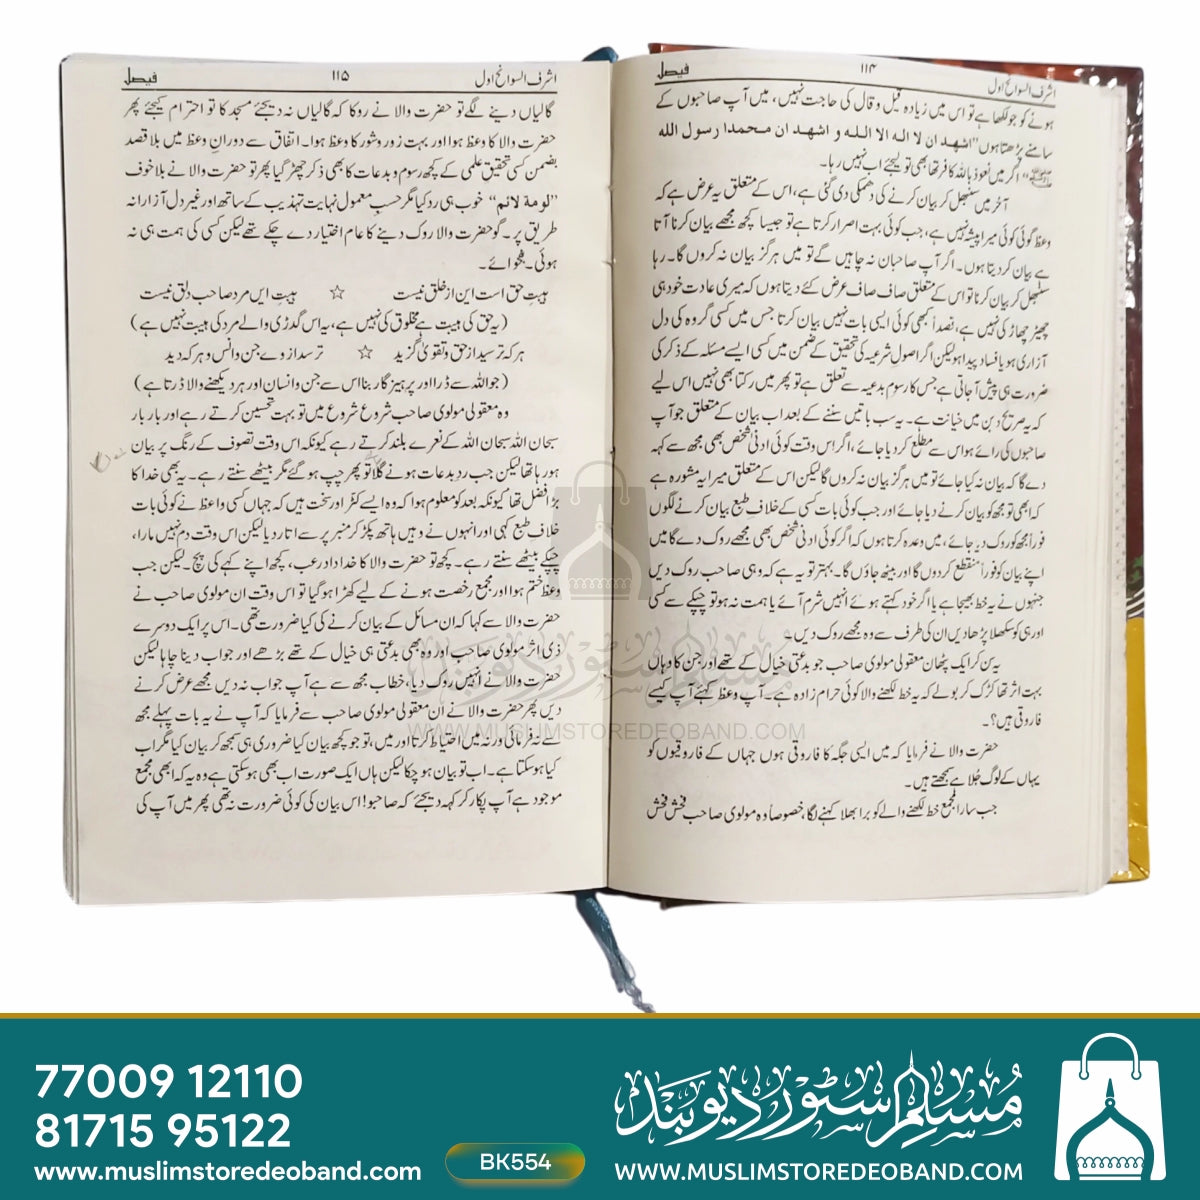 اشرف السوانح اول ۱۱۴ فیصل
ہونے کو جو لکھا ہے تو اس میں زیادہ قیل و قال کی حاجت نہیں، میں آپ صاحبوں کے
سامنے پڑھتا ہوں "اشهد ان لا اله الا الله و اشهد ان محمدا رسول الله
ﷺ" اگر میں نعوذ باللہ کافر تھا بھی تو لیجئے اب نہیں رہا۔
آخر میں سنبھل کر بیان کرنے کی دھمکی دی گئی ہے، اس کے متعلق یہ عرض ہے کہ
وعظ گوئی کوئی میرا پیشہ نہیں ہے، جب کوئی بہت اصرار کرتا ہے تو جیسا کچھ مجھے بیان کرنا آتا
ہے بیان کر دیتا ہوں۔ اگر آپ صاحبان نہ چاہیں گے تو میں ہرگز بیان نہ کروں گا۔ رہا
سنبھل کر بیان کرنا تو اس کے متعلق صاف صاف عرض کئے دیتا ہوں کہ میری عادت خود ہی
چھیڑ چھاڑ کی نہیں ہے، قصداً کبھی کوئی ایسی بات نہیں بیان کرتا جس میں کسی گروہ کی دل
آزاری ہو یا فساد پیدا ہو لیکن اگر اصول شرعیہ کی تحقیق کے ضمن میں کسی ایسے مسئلہ کے ذکر کی
ضرورت ہی پیش آجاتی ہے جس کا رسوم بدعیہ سے تعلق ہے تو پھر میں رکتا بھی نہیں اس لیے
کہ یہ صریح دین میں خیانت ہے۔ یہ سب باتیں سننے کے بعد اب بیان کے متعلق جو آپ
صاحبوں کی رائے ہو اس سے مطلع کر دیا جائے، اگر اس وقت کوئی ادنیٰ شخص بھی مجھ سے کہہ
دے گا کہ بیان نہ کیا جائے تو میں ہرگز بیان نہ کروں گا لیکن اس کے متعلق میرا یہ مشورہ ہے
کہ ابھی تو مجھ کو بیان کرنے دیا جائے اور جب کوئی بات کسی کے خلاف طبع بیان کرنے لگوں
فوراً مجھ کو روک دیا جائے، میں وعدہ کرتا ہوں کہ اگر کوئی ادنیٰ شخص بھی مجھے روک دے گا میں
اپنے بیان کو فوراً منقطع کر دوں گا اور بیٹھ جاؤں گا۔ بہتر تو یہ ہے کہ وہی صاحب روک دیں
جنہوں نے یہ خط بھیجا ہے یا اگر خود کہتے ہوئے انہیں شرم آئے یا ہمت نہ ہو تو چپکے سے کسی
اور ہی کو سکھلا پڑھا دیں ان کی طرف سے وہ مجھے روک دیں۔
یہ سن کر ایک پٹھان معقولی مولوی صاحب جو بدعتی خیال کے تھے اور جن کا وہاں
بہت اثر تھا کڑک کر بولے کہ یہ خط لکھنے والا کوئی حرام زادہ ہے۔ آپ وعظ کہئے آپ کیسے
فاروقی ہیں؟۔
حضرت والا نے فرمایا کہ میں ایسی جگہ کا فاروقی ہوں جہاں کے فاروقیوں کو
یہاں کے لوگ جُلاہے سمجھتے ہیں۔
جب سارا مجمع خط لکھنے والے کو برا بھلا کہنے لگا، خصوصاً وہ مولوی صاحب فحش فحش
اشرف السوانح اول ۱۱۵ فیصل
گالیاں دینے لگے تو حضرت والا نے روکا کہ گالیاں نہ دیجئے مسجد کا تو احترام کیجئے پھر
حضرت والا کا وعظ ہوا اور بہت زور و شور کا وعظ ہوا۔ اتفاق سے دورانِ وعظ میں بلا قصد
بضمن کسی تحقیق علمی کے کچھ رسوم و بدعات کا بھی ذکر چھڑ گیا پھر تو حضرت والا نے بلا خوف
"لومة لائم" خوب ہی رد کیا مگر حسبِ معمول نہایت تہذیب کے ساتھ اور غیر دل آزارانہ
طریق پر۔ گو حضرت والا روک دینے کا عام اختیار دے چکے تھے لیکن کسی کی ہمت ہی نہ
ہوئی۔ بفحوائے۔
ہیبتِ حق است این از خلق نیست ☆ ہیبتِ ایں مرد صاحب دلق نیست
(یہ حق کی ہیبت ہے مخلوق کی نہیں ہے، یہ اس گدڑی والے مرد کی ہیبت نہیں ہے)
ہر کہ ترسید از حق و تقویٰ گزید ☆ ترسد از وے جن و انس و ہر کہ دید
(جو اللہ سے ڈرا اور پرہیز گار بنا اس سے جن و انسان اور ہر دیکھنے والا ڈرتا ہے)
وہ معقولی مولوی صاحب شروع شروع میں تو بہت تحسین کرتے رہے اور بار بار
سبحان اللہ سبحان اللہ کے نعرے بلند کرتے رہے کیونکہ اس وقت تصوف کے رنگ پر بیان
ہو رہا تھا لیکن جب ردِ بدعات ہونے لگا تو پھر چپ ہو گئے مگر بیٹھے سنتے رہے۔ یہ بھی خدا کا
بڑا فضل تھا کیونکہ بعد کو معلوم ہوا کہ وہ ایسے کٹر اور سخت ہیں کہ جہاں کسی واعظ نے کوئی بات
خلافِ طبع کہی اور انہوں نے وہیں ہاتھ پکڑ کر منبر پر سے اتار دیا لیکن اس وقت دم نہیں مارا،
چپکے بیٹھے سنتے رہے۔ کچھ تو حضرت والا کا خداداد رعب، کچھ اپنے کہے کی پچ۔ لیکن جب
وعظ ختم ہوا اور مجمع رخصت ہونے کے لیے کھڑا ہو گیا تو اس وقت ان مولوی صاحب نے
حضرت والا سے کہا کہ ان مسائل کے بیان کرنے کی کیا ضرورت تھی۔ اس پر ایک دوسرے
ذی اثر مولوی صاحب اور وہ بھی بدعتی ہی خیال کے تھے بڑھے اور جواب دینا چاہا لیکن
حضرت والا نے انہیں روک دیا، خطاب مجھ سے ہے آپ جواب نہ دیں مجھے عرض کرنے
دیں پھر حضرت والا نے اُن معقولی مولوی صاحب سے فرمایا کہ آپ نے یہ بات پہلے مجھ
سے نہ فرمائی ورنہ میں احتیاط کرتا اور میں نے، تو جو کچھ بیان کیا ضروری ہی سمجھ کر بیان کیا مگر اب
کیا ہو سکتا ہے۔ اب تو بیان ہو چکا لیکن ہاں ایک صورت اب بھی ہو سکتی ہے وہ یہ کہ ابھی مجمع
موجود ہے آپ پکار کر کہہ دیجئے کہ صاحبو! اس بیان کی کوئی ضرورت نہ تھی پھر میں آپ کی
مسلم سٹور دیوبند
WWW.MUSLIMSTOREDEOBAND.COM
77009 12110
81715 95122
www.muslimstoredeoband.com
BK554
مسلم سٹور دیوبند
WWW.MUSLIMSTOREDEOBAND.COM